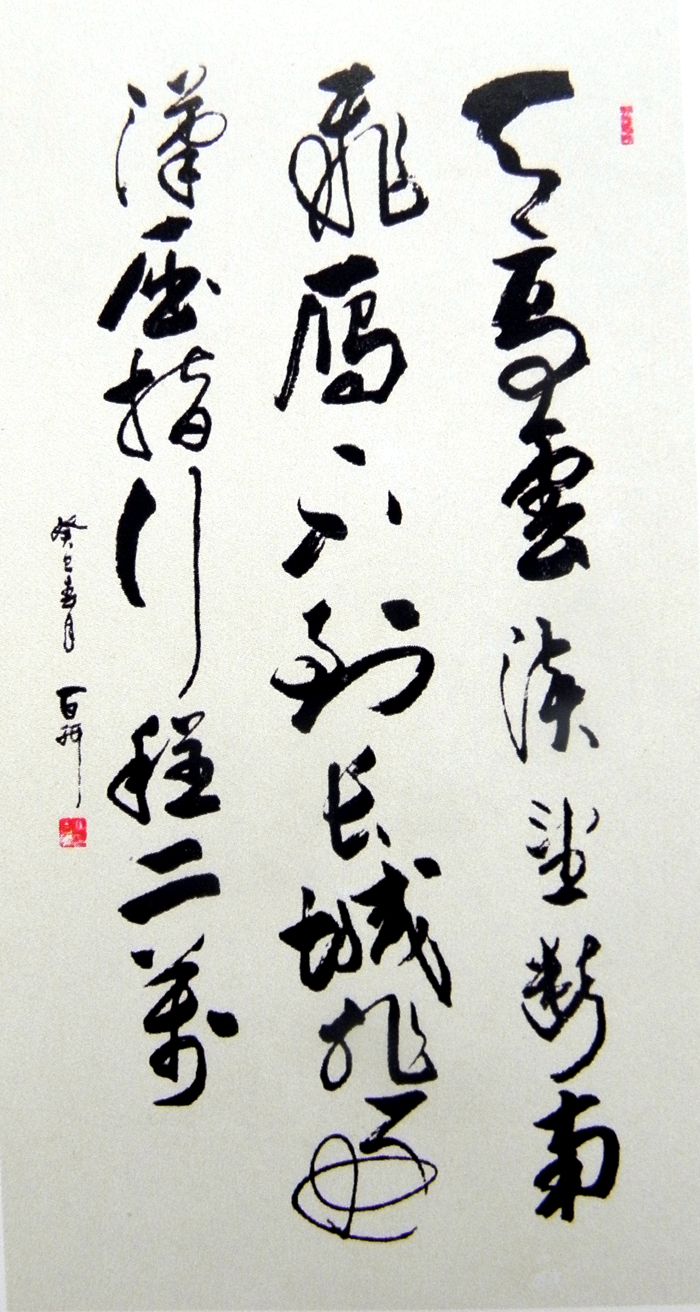 天高雲淡望斷南
飛雁不到长城非好
漢屈指行程二萬
癸巳春月 百